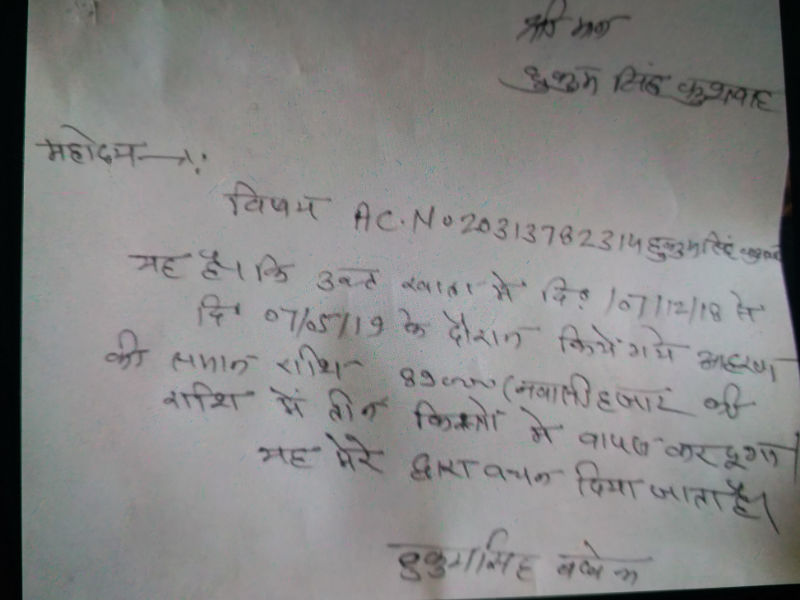 श्री मान
हुकुम सिंह कुशवाह
महोदय
विषय AC. No 20313782314 हुकुम सिंह
यह है। कि उक्त खाता में दि० /07/12/18 से
दि 07/05/19 के दौरान किये गये आहरण
की समान राशि 89000 (नवासी हजार की
राशि में तीन किस्तो में वापस कर दूगा।
यह मेरे द्वारा वचन दिया जाता है।
हुकुम सिंह